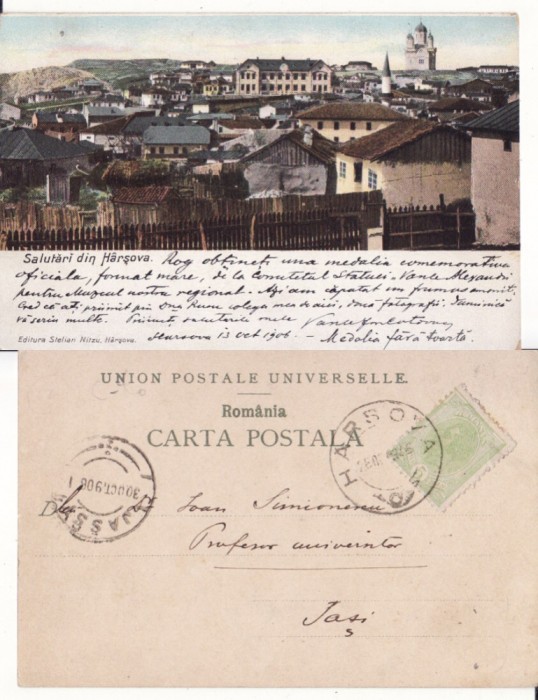 Salutări din Hârșova. Rog obțineți una medalia comemorativa
oficiala, format mare, de la Comitetul Statuei Vasile Alexandri
pentru Muzeul nostru regional. Azi am capatat un frumos
Cred că ați primit prin Dna colega mea de aici, doua fotografii. Duminică
vă scriu multe. Primiți salutările mele
Harsova 13 Oct 1906. – Medalia fără toartă.
Editura Stelian Nitzu, Hârșova.
UNION POSTALE UNIVERSELLE.
România
CARTA POSTALĂ
HARSOVA
30 OCT 906
JASSY
Ioan Simionescu
Profesor universitar
Iași